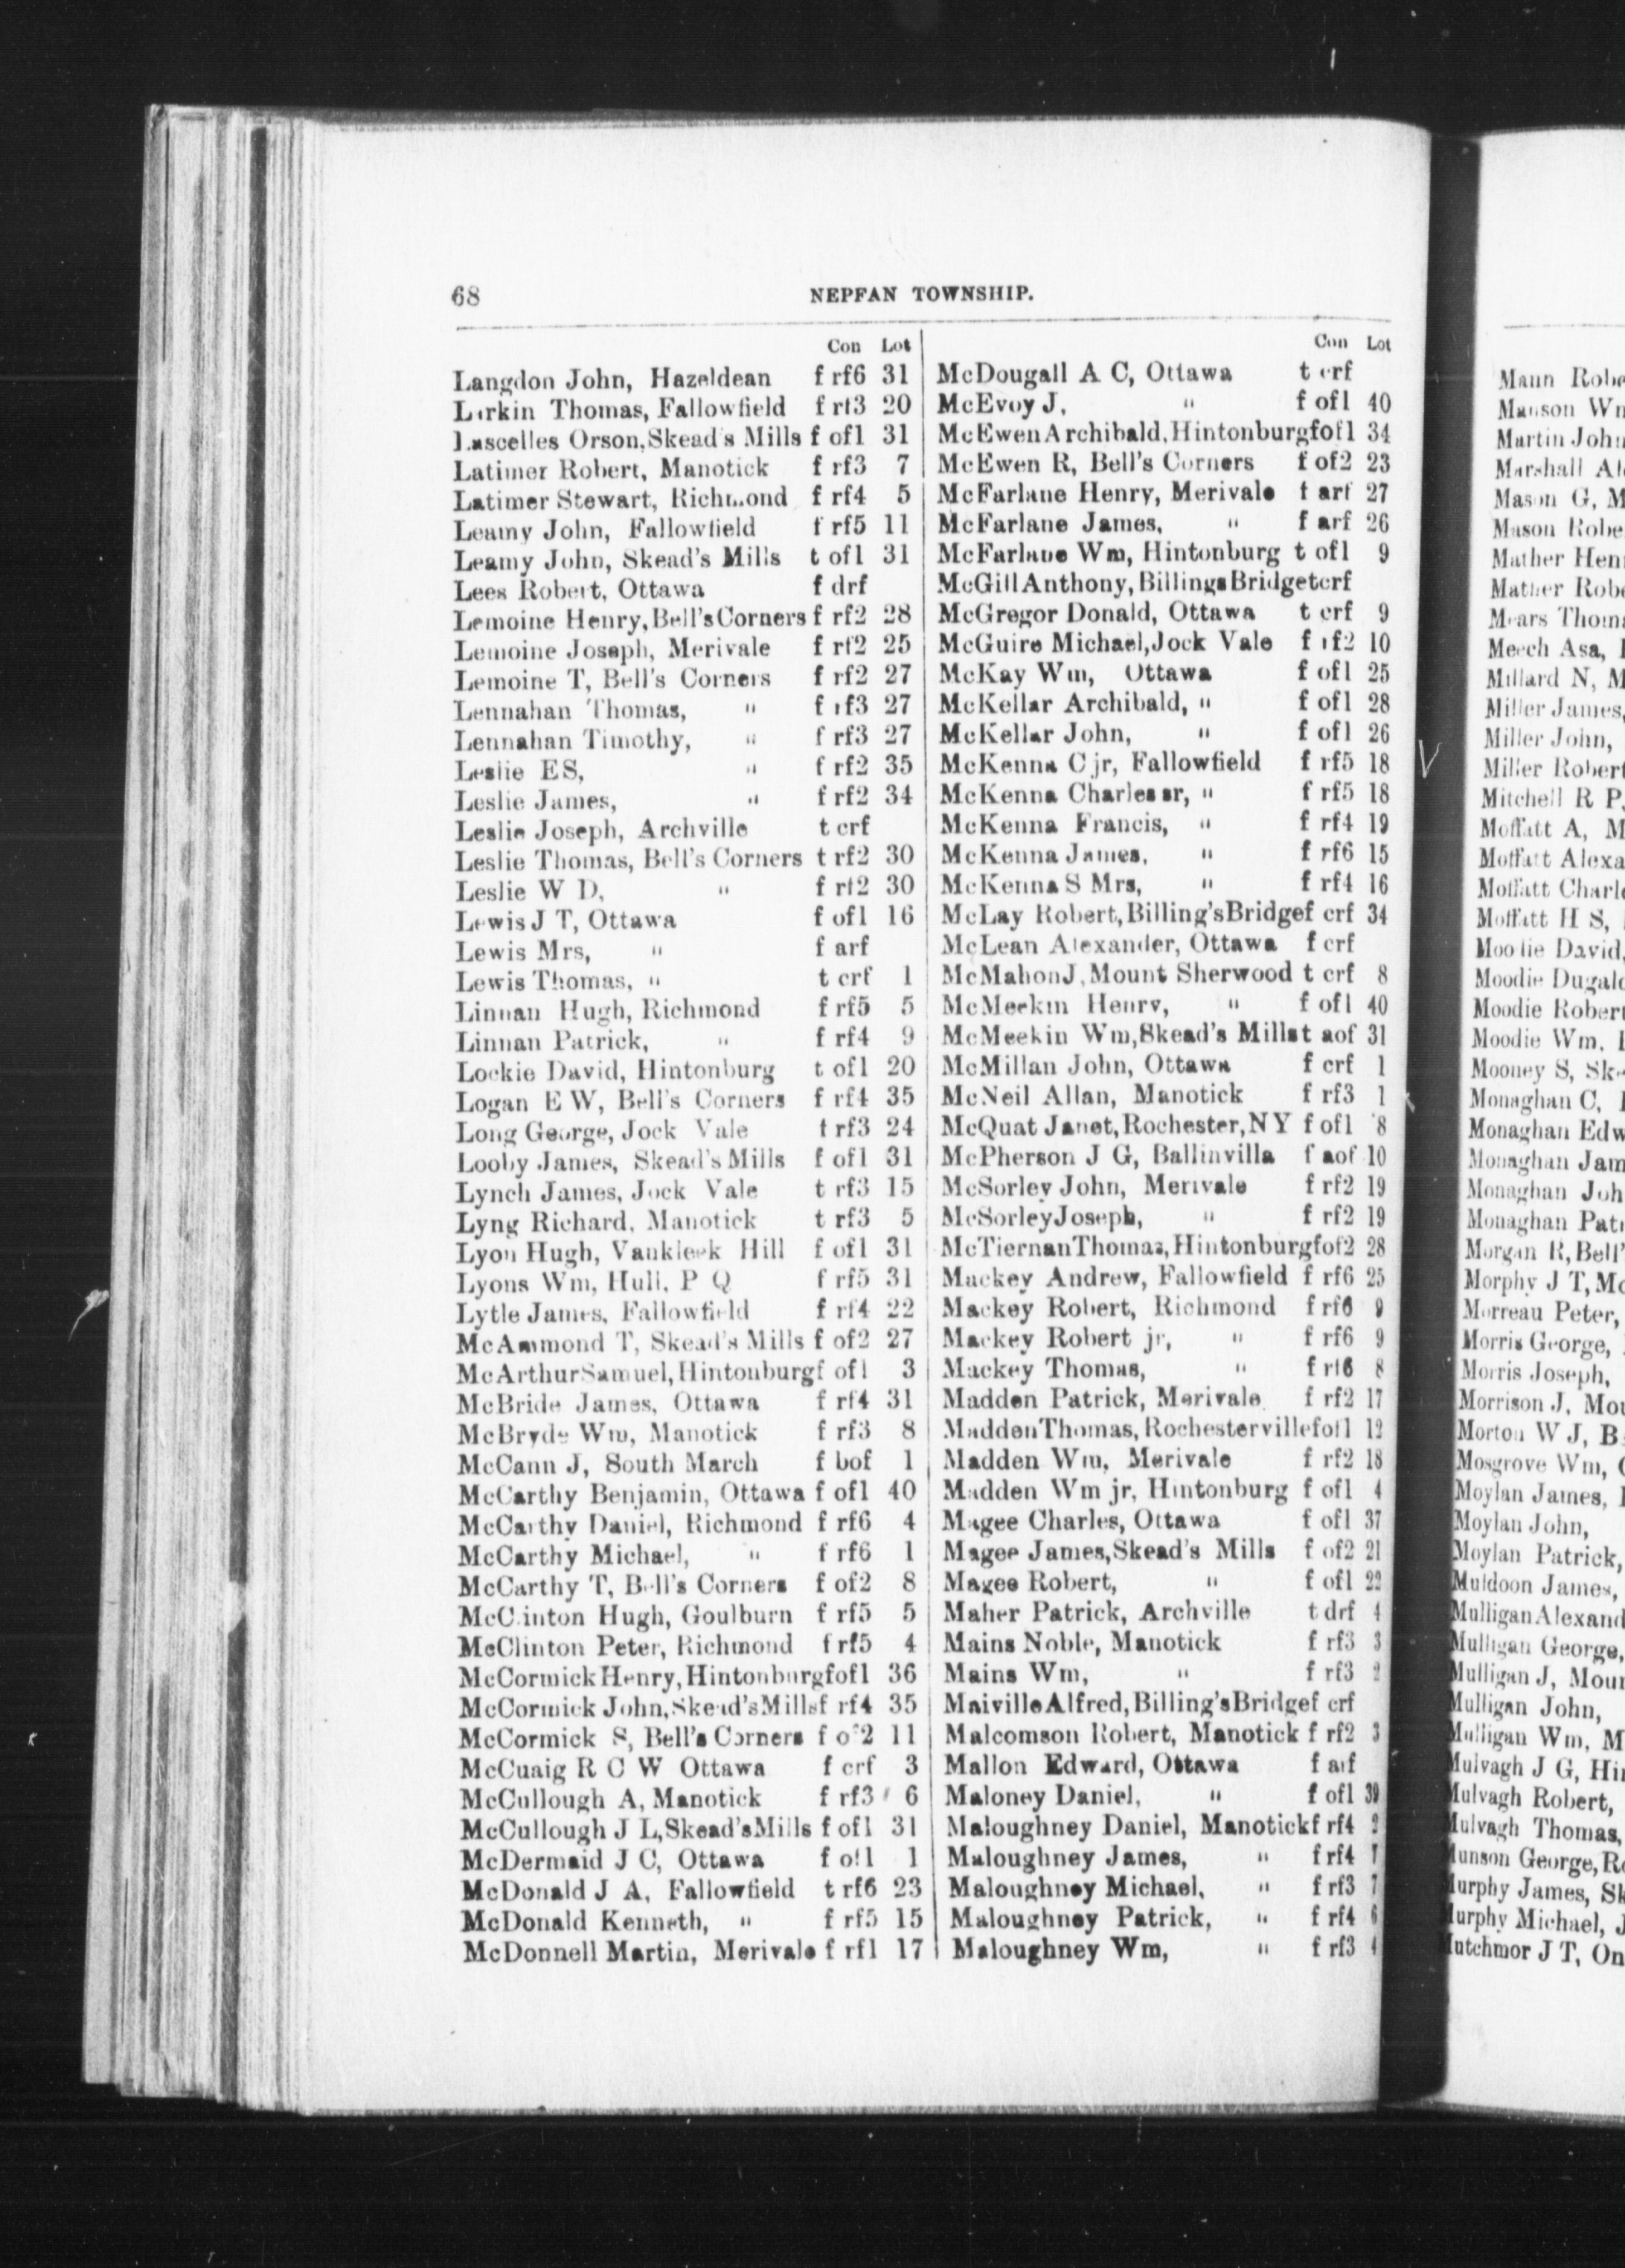 68
NEPFAN TOWNSHIP.
Con Lot
Langdon John, Hazeldean f rf6 31
Larkin Thomas, Fallowfield f rf3 20
Lascelles Orson, Skead's Mills f of1 31
Latimer Robert, Manotick f rf3 7
Latimer Stewart, Richmond f rf4 5
Leamy John, Fallowfield f rf5 11
Leamy John, Skead's Mills t of1 31
Lees Robert, Ottawa f drf
Lemoine Henry, Bell's Corners f rf2 28
Lemoine Joseph, Merivale f rf2 25
Lemoine T, Bell's Corners f rf2 27
Lennahan Thomas, " f rf3 27
Lennahan Timothy, " f rf3 27
Leslie E S, " f rf2 35
Leslie James, " f rf2 34
Leslie Joseph, Archville t crf
Leslie Thomas, Bell's Corners t rf2 30
Leslie W D, " f rf2 30
Lewis J T, Ottawa f of1 16
Lewis Mrs, " f arf
Lewis Thomas, " t crf 1
Linnan Hugh, Richmond f rf5 5
Linnan Patrick, " f rf4 9
Lockie David, Hintonburg t of1 20
Logan E W, Bell's Corners f rf4 35
Long George, Jock Vale t rf3 24
Looby James, Skead's Mills f of1 31
Lynch James, Jock Vale t rf3 15
Lyng Richard, Manotick t rf3 5
Lyon Hugh, Vankleek Hill f of1 31
Lyons Wm, Hull, P Q f rf5 31
Lytle James, Fallowfield f rf4 22
McAmmond T, Skead's Mills f of2 27
McArthur Samuel, Hintonburg f of1 3
McBride James, Ottawa f rf4 31
McBryde Wm, Manotick f rf3 8
McCann J, South March f bof 1
McCarthy Benjamin, Ottawa f of1 40
McCarthy Daniel, Richmond f rf6 4
McCarthy Michael, " f rf6 1
McCarthy T, Bell's Corners f of2 8
McClinton Hugh, Goulburn f rf5 5
McClinton Peter, Richmond f rf5 4
McCormick Henry, Hintonburg f of1 36
McCormick John, Skead's Mills f rf4 35
McCormick S, Bell's Corners f of2 11
McCuaig R C W Ottawa f crf 3
McCullough A, Manotick f rf3 6
McCullough J L, Skead's Mills f of1 31
McDermaid J C, Ottawa f of1 1
McDonald J A, Fallowfield t rf6 23
McDonald Kenneth, " f rf5 15
McDonnell Martin, Merivale f rf1 17
Con Lot
McDougall A C, Ottawa t crf
McEvoy J, " f of1 40
McEwen Archibald, Hintonburg f of1 34
McEwen R, Bell's Corners f of2 23
McFarlane Henry, Merivale t arf 27
McFarlane James, " f arf 26
McFarlane Wm, Hintonburg t of1 9
McGill Anthony, Billings Bridge t crf
McGregor Donald, Ottawa t crf 9
McGuire Michael, Jock Vale f rf2 10
McKay Wm, Ottawa f of1 25
McKellar Archibald, " f of1 28
McKellar John, " f of1 26
McKenna C jr, Fallowfield f rf5 18
McKenna Charles sr, " f rf5 18
McKenna Francis, " f rf4 19
McKenna James, " f rf6 15
McKenna S Mrs, " f rf4 16
McLay Robert, Billing's Bridge f crf 34
McLean Alexander, Ottawa f crf
McMahon J, Mount Sherwood t crf 8
McMeekin Henry, " f of1 40
McMeekin Wm, Skead's Mills t aof 31
McMillan John, Ottawa f crf 1
McNeil Allan, Manotick f rf3 1
McQuat Janet, Rochester, N Y f of1 8
McPherson J G, Ballinvilla f aof 10
McSorley John, Merivale f rf2 19
McSorley Joseph, " f rf2 19
McTiernan Thomas, Hintonburg f of2 28
Mackey Andrew, Fallowfield f rf6 25
Mackey Robert, Richmond f rf6 9
Mackey Robert jr, " f rf6 9
Mackey Thomas, " f rf6 8
Madden Patrick, Merivale f rf2 17
Madden Thomas, Rochesterville f of1 12
Madden Wm, Merivale f rf2 18
Madden Wm jr, Hintonburg f of1 4
Magee Charles, Ottawa f of1 37
Magee James, Skead's Mills f of2 21
Magee Robert, " f of1 22
Maher Patrick, Archville t drf 4
Mains Noble, Manotick f rf3 3
Mains Wm, " f rf3 2
Maiville Alfred, Billing's Bridge f crf
Malcomson Robert, Manotick f rf2 3
Mallon Edward, Ottawa f arf
Maloney Daniel, " f of1 39
Maloughney Daniel, Manotick f rf4 2
Maloughney James, " f rf4 7
Maloughney Michael, " f rf3 7
Maloughney Patrick, " f rf4 6
Maloughney Wm, " f rf3 4
Mann Robe
Manson Wm
Martin John
Marshall Al
Mason G, M
Mason Robe
Mather Hen
Mather Robe
Mears Thoma
Meech Asa,
Millard N, M
Miller James,
Miller John,
Miller Robert
Mitchell R P,
Moffatt A, M
Moffatt Alexa
Moffatt Charl
Moffatt H S,
Moodie David,
Moodie Dugald
Moodie Robert
Moodie Wm,
Mooney S, Sk
Monaghan C,
Monaghan Edw
Monaghan Jam
Monaghan Joh
Monaghan Pat
Morgan R, Bell'
Morphy J T, Mc
Morreau Peter,
Morris George,
Morris Joseph,
Morrison J, Mou
Morton W J, B
Mosgrove Wm,
Moylan James,
Moylan John,
Moylan Patrick,
Muldoon James,
Mulligan Alexand
Mulligan George,
Mulligan J, Moun
Mulligan John,
Mulligan Wm, M
Mulvagh J G, Hin
Mulvagh Robert,
Mulvagh Thomas,
unson George, Ro
urphy James, Sk
urphy Michael, J
utchmor J T, On